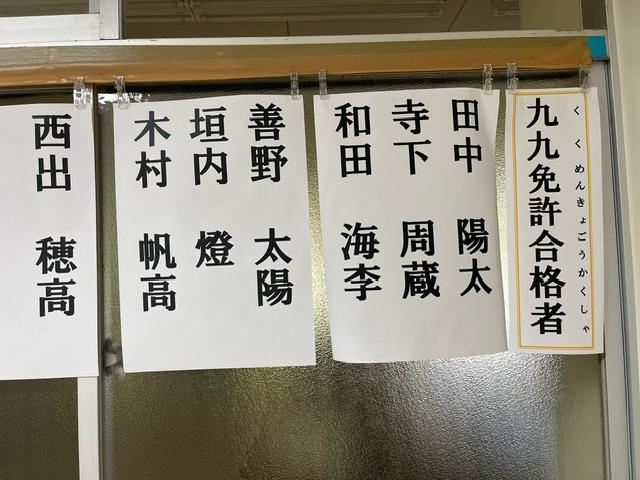 九九免許合格者
くくめんきょごうかくしゃ
田中 陽太
寺下 周蔵
和田 海李
善野 太陽
垣内 燈
木村 帆高
西出 穂高